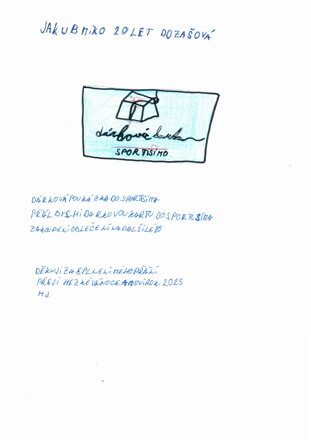 JAKUB MIKO 20 LET DOZAŠOVÁ
dárková karta
SPORTISIMO
DÁRKOVÁ POUKÁZKA DO SPORTISIMA
PŘÁL BYCH SI DARKOVOU KARTU DO SPORTISIMA
ZAKOUPENI OBLEČENÍ NA DALŠI LETO
DĚKUJI ZA SPLNENÍ MEHO PŘÁNÍ
PŘEJI HEZKÉ VÁNOCE A NOVÍ ROK 2025
MJ